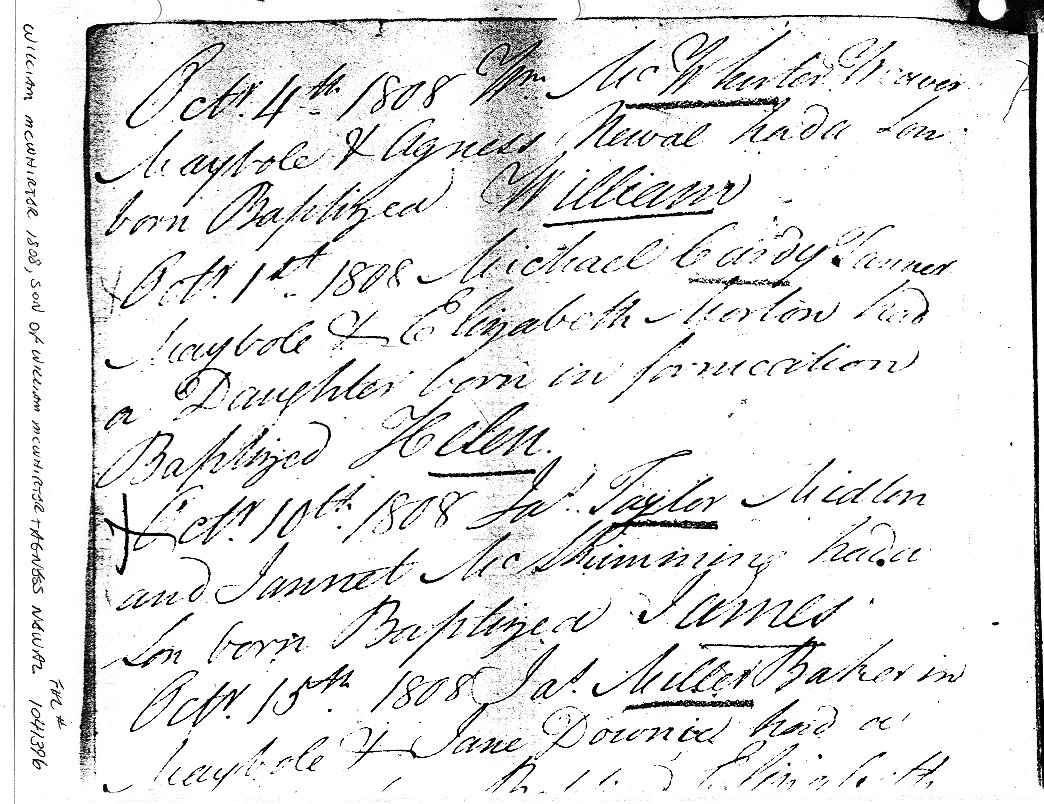 Octr. 4th 1808 Wm. McWhirter Weaver
Maybole & Agness Newal had a Son
born Baptized William
Octr. 1st. 1808 Michael Curdy Tanner
Maybole & Elizabeth Morton had
a Daughter born in fornication
Baptized Helen.
Octr. 10th. 1808 Jas. Taylor Midton
and Jannet McSkimming had a
Son born Baptized James
Octr. 15th 1808 Jas. Miller Baker in
Maybole & Jane Downie had a
Elizabeth
WILLIAM MCWHIRTER 1808, SON OF WILLIAM MCWHIRTER + AGNESS NEWAL
FILM #
1041396